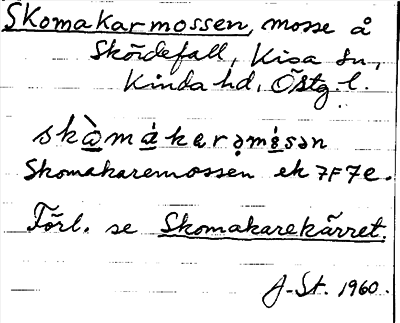 Skomakarmossen, mosse å
Skördefall, Kisa sn,
Kinda hd, Östg. l.
skò̱mák̀arə̣mósən
Skomakaremossen ek 7F7e.
Förl. se Skomakarekärret.
J-St. 1960.